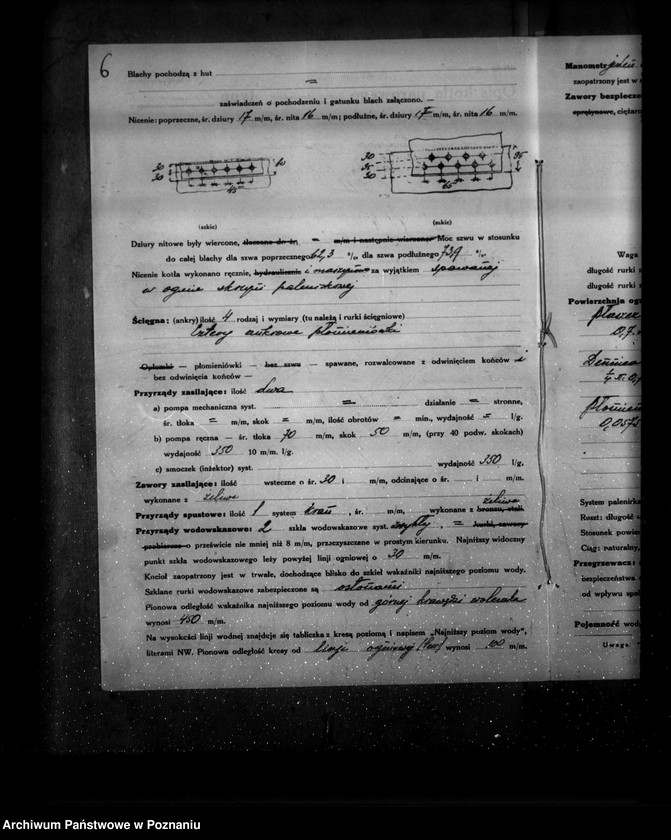 6
Blachy pochodzą z hut =
zaświadczeń o pochodzeniu i gatunku blach załączono. —
Nicenie: poprzeczne, śr. dziury 17 m/m, śr. nita 16 m/m; podłużne, śr. dziury 17 m/m, śr. nita 16 m/m.
30
30
45
60
30
35
30
65
95
(szkic) (szkic)
Dziury nitowe były wiercone, tłoczone do śr. = m/m i następnie wiercone. Moc szwu w stosunku
do całej blachy dla szwa poprzecznego 62,3 %, dla szwa podłużnego 73,9 %
Nicenie kotła wykonano ręcznie, hydraulicznie i maszynowo za wyjątkiem spawanej
w ogniu skrzyni paleniskowej
Ścięgna: (ankry) ilość 4 rodzaj i wymiary (tu należą i rurki ścięgniowe)
Cztery ankrowe płomieniówki
Opłomki — płomieniówki — bez szwu — spawane, rozwalcowane z odwinięciem końców i
bez odwinięcia końców —
Przyrządy zasilające: ilość dwa
a) pompa mechaniczna syst. = działanie = stronne,
śr. tłoka = m/m, skok = m/m, ilość obrotów = min., wydajność = l/g.
b) pompa ręczna — śr. tłoka 70 m/m, skok 50 m/m, (przy 40 podw. skokach)
wydajność 350 10 m/m. l/g.
c) smoczek (inżektor) syst. wydajność 350 l/g,
Zawory zasilające: ilość wsteczne o śr. 30 i m/m, odcinające o śr. i m/m.
wykonane z żeliwa
żeliwa
Przyrządy spustowe: ilość 1 system kran, śr. m/m, wykonane z bronzu, stali.
Przyrządy wodowskazowe: 2 szkła wodowskazowe syst. zwykły, = kurki, zawory
probiercze o prześwicie nie mniej niż 8 m/m, przeczyszczane w prostym kierunku. Najniższy widoczny
punkt szkła wodowskazowego leży powyżej linji ogniowej o 30 m/m.
Kocioł zaopatrzony jest w trwałe, dochodzące blisko do szkieł wskaźniki najniższego poziomu wody.
Szklane rurki wodowskazowe zabezpieczone są osłonami
Pionowa odległość wskaźnika najniższego poziomu wody od górnej krawędzi walczaka
wynosi 450 m/m.
Na wysokości linji wodnej znajduje się tabliczka z kresą poziomą i napisem „Najniższy poziom wody”,
literami NW. Pionowa odległość kresy od linji ogniowej wynosi 100 m/m.
Manometr
zaopatrzony jest w
Zawory bezpiecze
sprężynowe, ciężaro
Waga
długość rurki
długość rurki
Powierzchnia ogr
0,7
Dennica
0,0575
System palenirka
Ruszt: długość
Stosunek powie
Ciąg: naturalny,
Przegrzewacz:
bezpieczeństwa
od wpływu spal
Pojemność wod
Uwaga:
Archiwum Państwowe w Poznaniu